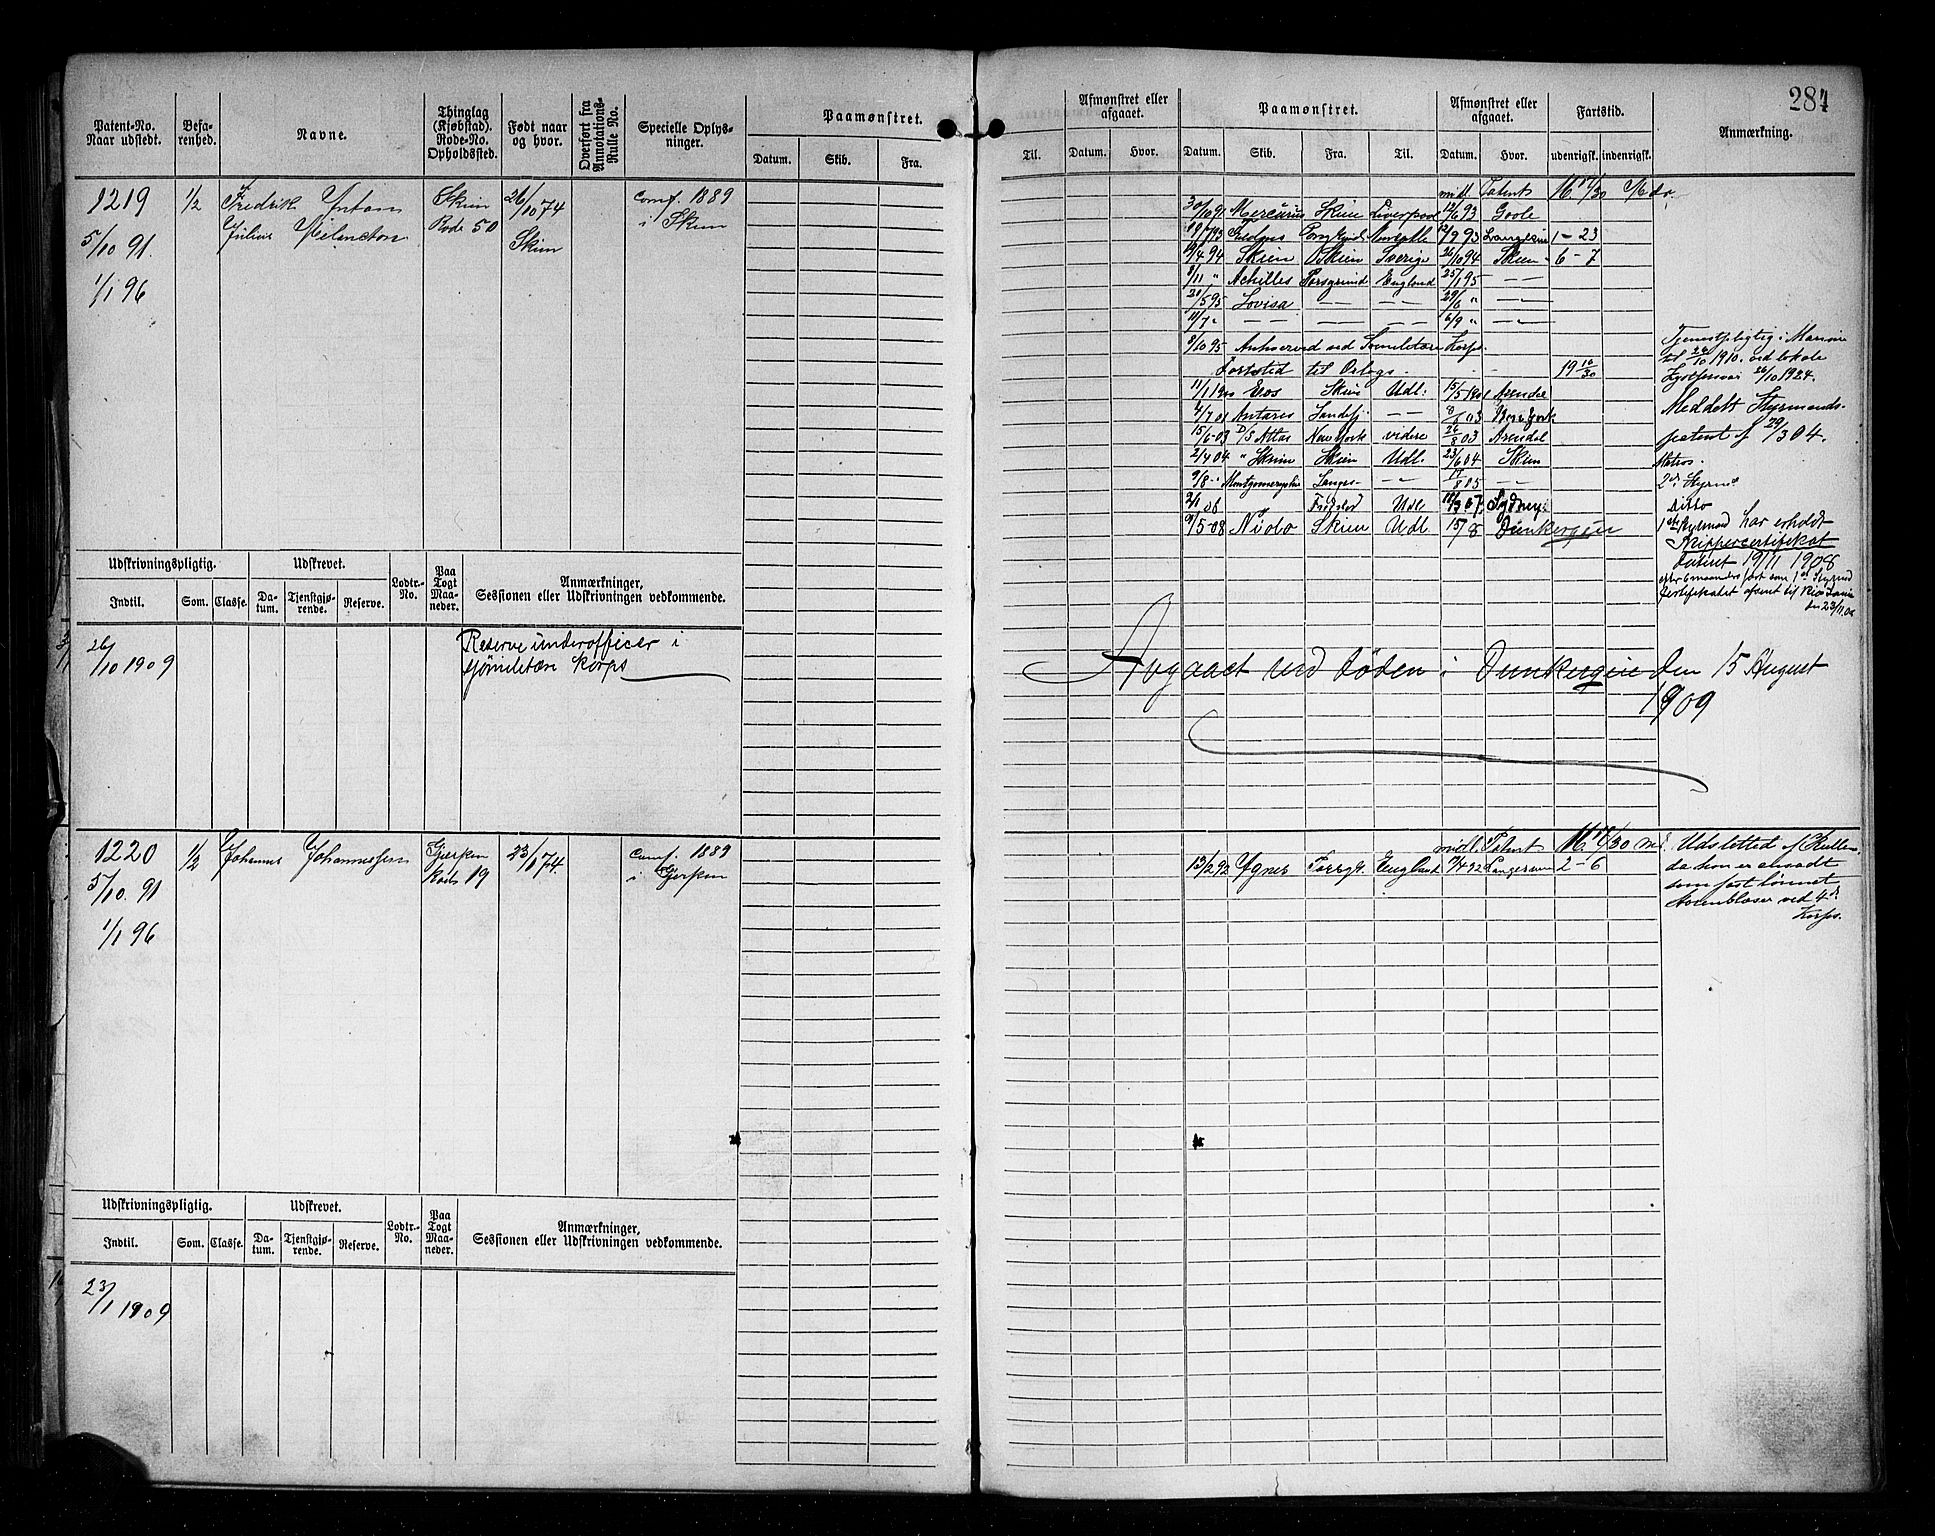 284
Patent-No. Naar udstedt.
Befa-renhed.
Navne.
Thinglag (Kjøbstad). Rode-No. Opholdssted.
Født naar og hvor.
Overført fra Annotations-Rulle No.
Specielle Oplys-ninger.
Paamønstret.
Datum. Skib. Fra.
Til.
Afmønstret eller afgaaet.
Datum. Hvor.
Paamønstret.
Datum. Skib. Fra. Til.
Afmønstret eller afgaaet.
Datum. Hvor.
Fartstid.
udenrigsk. indenrigsk.
Anmærkning.
1219 1/2 Fredrik Anton Skien 26/10 74 Conf. 1889
5/10 91. Julius Melancton Rode 50 Skien i Skien
1/1 96
midl. Patent 16 17/30 Mdr.
30/10 91 Mercurius Skien Liverpool 12/6 93 Goole
19/7 93 12/9 93 1 - 23
19/4 94 Skien Skien Sverige 26/10 94 Skien 6 - 7
8/11 " Achilles Porsgrund England 25/1 95 — " —
20/5 95 Lovisa — — — — 29/6 " — " —
11/7 " — — — — — — 6/9 " — " —
8/10 95 ved Korps.
Fartstid til Orlogs 19 10/30
11/1 1900 Eros Skien Udl: 15/5 1901 Arendal
4/7 01 Antares Sandefj. — — 03 New York
15/6-03 D/S Atlas New York videre 26/8 03 Arendal
2/4 04 " Skien Skien Udl. 23/6 04 Skien
9/8 - " Langes- — " — 17/8 05 — " —
2/1 06 Fr.stad Udl 07 Sydney
9/5-08 Skien Udl. 15/8 Dunkerque
Tjenestpligtig i Marine
til 26/10 1910. ved lokale
Kystforsvar 26/10 1924.
Meddelt Styrmands-
patent 29/3 04.
Matros.
2den Styrm.
Ditto
1ste Styrmand har erholdt
Skippercertifikat
Datert 19/11 1908
efter 6 maaneders fart som 1ste Styrmd
Certifikatet afsent til
den 23/11.08
Udskrivningspligtig. Udskrevet. Lodtr.-No. Paa Togt Maa-neder. Anmærkninger, Sessionen eller Udskrivningen vedkommende.
Indtil. Som. Classe. Da-tum. Tjenstgjø-rende. Reserve.
26/10 1909 Reserve underofficer i
Sjømilitære Korps
Afgaaet ved døden i Dunkerque den 15 August
1909
1220 1/2 Johannes Johannessen Gjerpen 23/1 74. Conf. 1889
5/10. 91 Rode 19 i Gjerpen
1/1 96
midl. Patent 16 17/30 Md.
13/2 92 Agnes Porsgr. England 92 Langesund 2 - 6
Udslettet af Rullen
da han er ansadt
som fast lønnet
Hornblæser ved 4de
Korps.
Udskrivningspligtig. Udskrevet. Lodtr.-No. Paa Togt Maa-neder. Anmærkninger, Sessionen eller Udskrivningen vedkommende.
Indtil. Som. Classe. Da-tum. Tjenstgjø-rende. Reserve.
23/1 1909